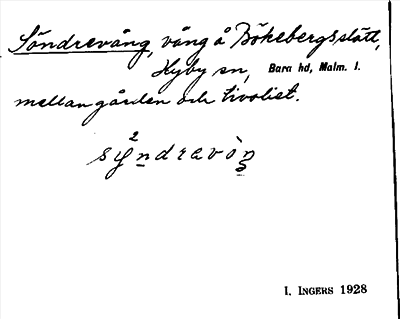 Söndrevång, vång å Bökebergsslätt,
Hyby sn, Bara hd, Malm. l.
mellan gården och tivoliet.
I. INGERS 1928